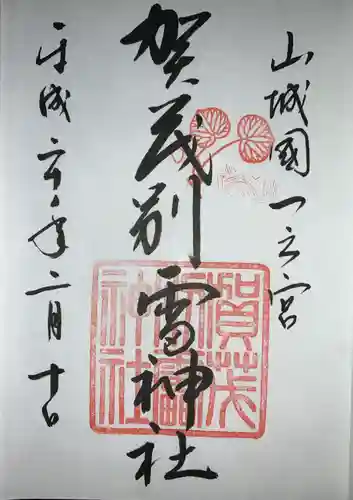 山城國一之宮
賀茂別雷神社
平成二十六年二月十日
賀茂別雷神社